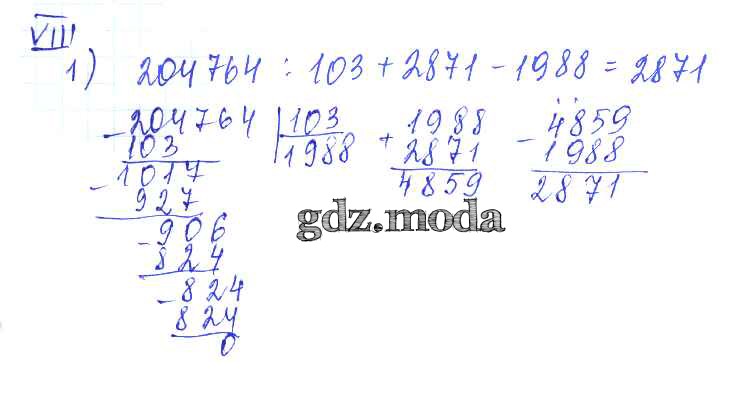 VIII
1) 204764 : 103 + 2871 - 1988 = 2871
- 204764 | 103 + 1988 - 4859
103 1988 2871 1988
- 1017 4859 2871
927
- 906
824
- 824
824
0
gdz.moda